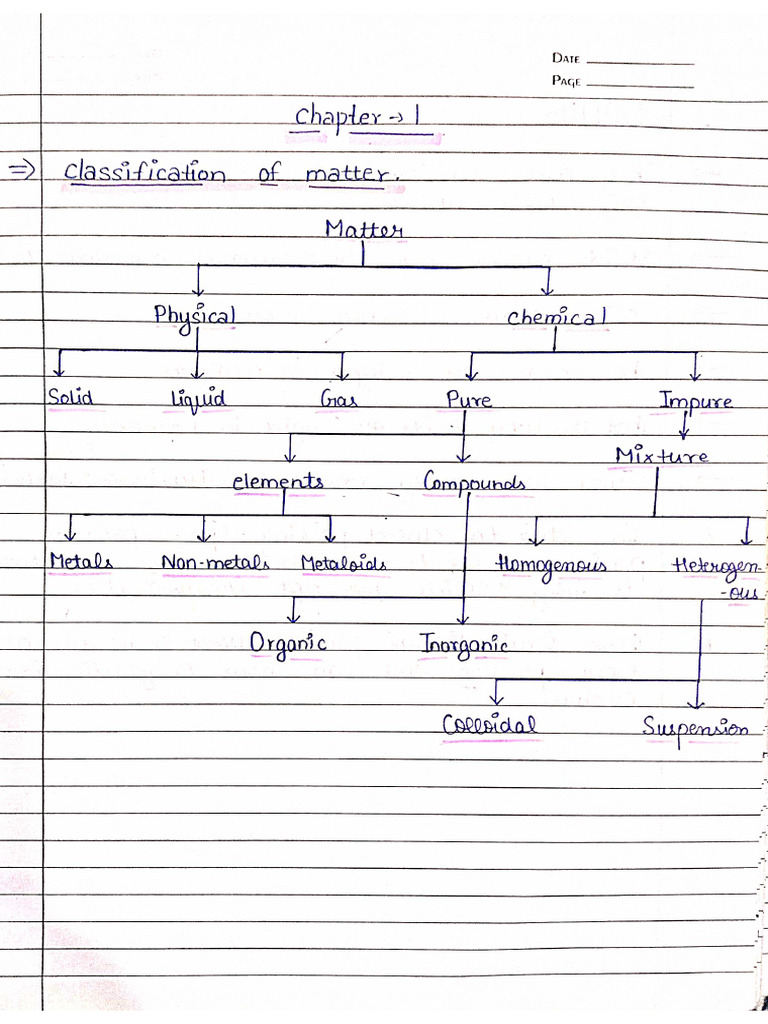 DATE
PAGE
Chapter → 1
⇒ Classification of matter.
Matter
Physical chemical
Solid Liquid Gas Pure Impure
Mixture
elements Compounds
Metals Non-metals Metaloids Homogenous Hetrogen-
-ous
Organic Inorganic
Colloidal Suspension